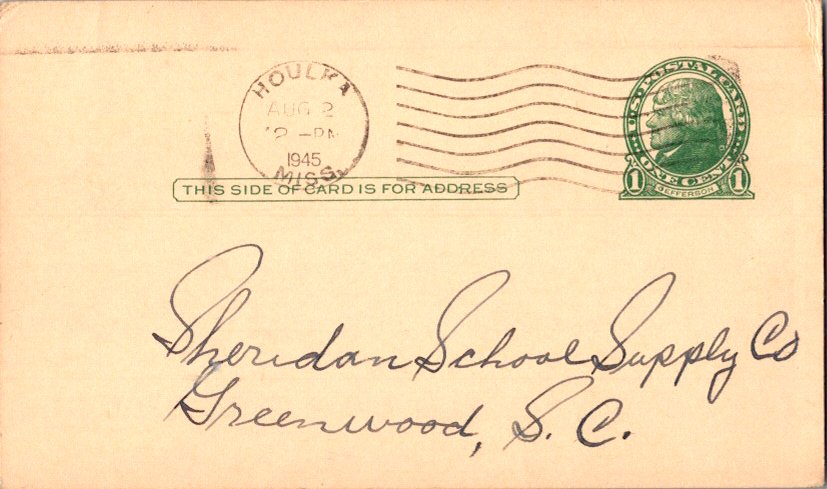 HOULKA
AUG 2
12 -PM
1945
MISS.
U.S. POSTAL CARD
ONE CENT
1 JEFFERSON 1
THIS SIDE OF CARD IS FOR ADDRESS
Sheridan School Supply Co
Greenwood, S. C.